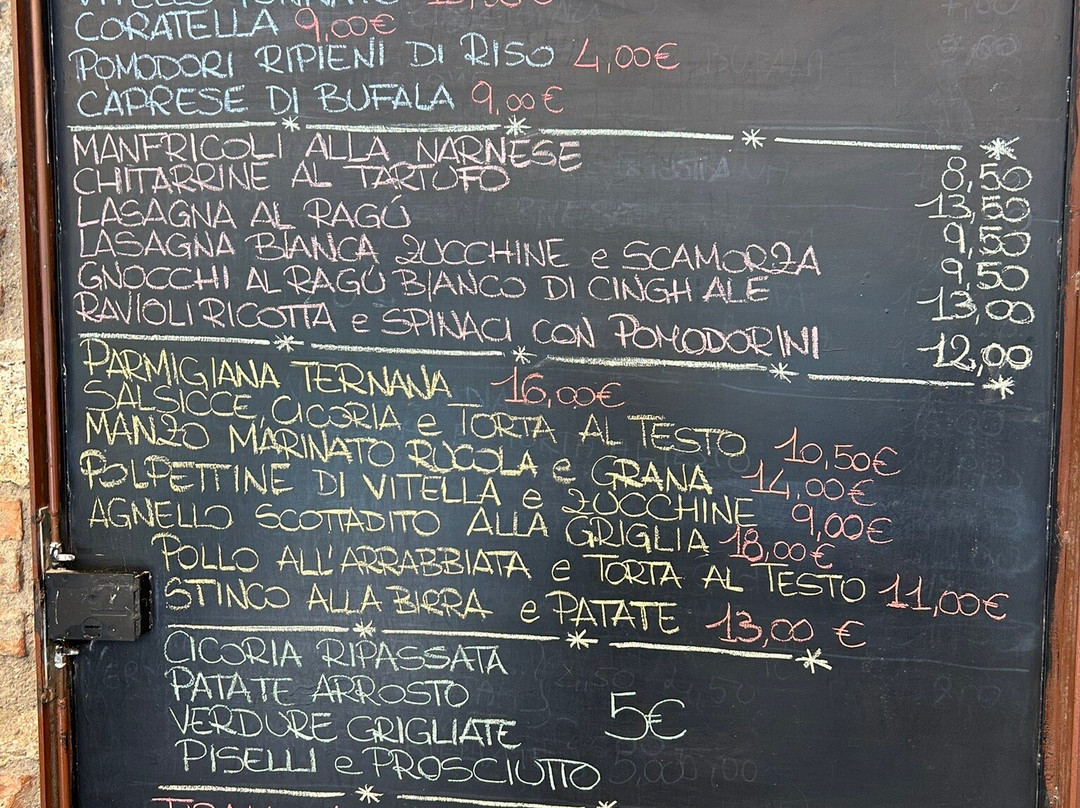 VITELLO TONNATO
CORATELLA 9,00€
POMODORI RIPIENI DI RISO 4,00€
CAPRESE DI BUFALA 9,00€
MANFRICOLI ALLA NARNESE 8,50
CHITARRINE AL TARTUFO 13,50
LASAGNA AL RAGÚ 9,50
LASAGNA BIANCA ZUCCHINE e SCAMORZA 9,50
GNOCCHI AL RAGÚ BIANCO DI CINGHIALE 13,00
RAVIOLI RICOTTA e SPINACI CON POMODORINI 12,00
PARMIGIANA TERNANA 16,00€
SALSICCE, CICORIA e TORTA AL TESTO 10,50€
MANZO MARINATO RUCOLA e GRANA 14,00€
POLPETTINE DI VITELLA e ZUCCHINE 9,00€
AGNELLO SCOTTADITO ALLA GRIGLIA 18,00€
POLLO ALL'ARRABBIATA e TORTA AL TESTO 11,00€
STINCO ALLA BIRRA e PATATE 13,00 €
CICORIA RIPASSATA
PATATE ARROSTO
VERDURE GRIGLIATE 5€
PISELLI e PROSCIUTTO